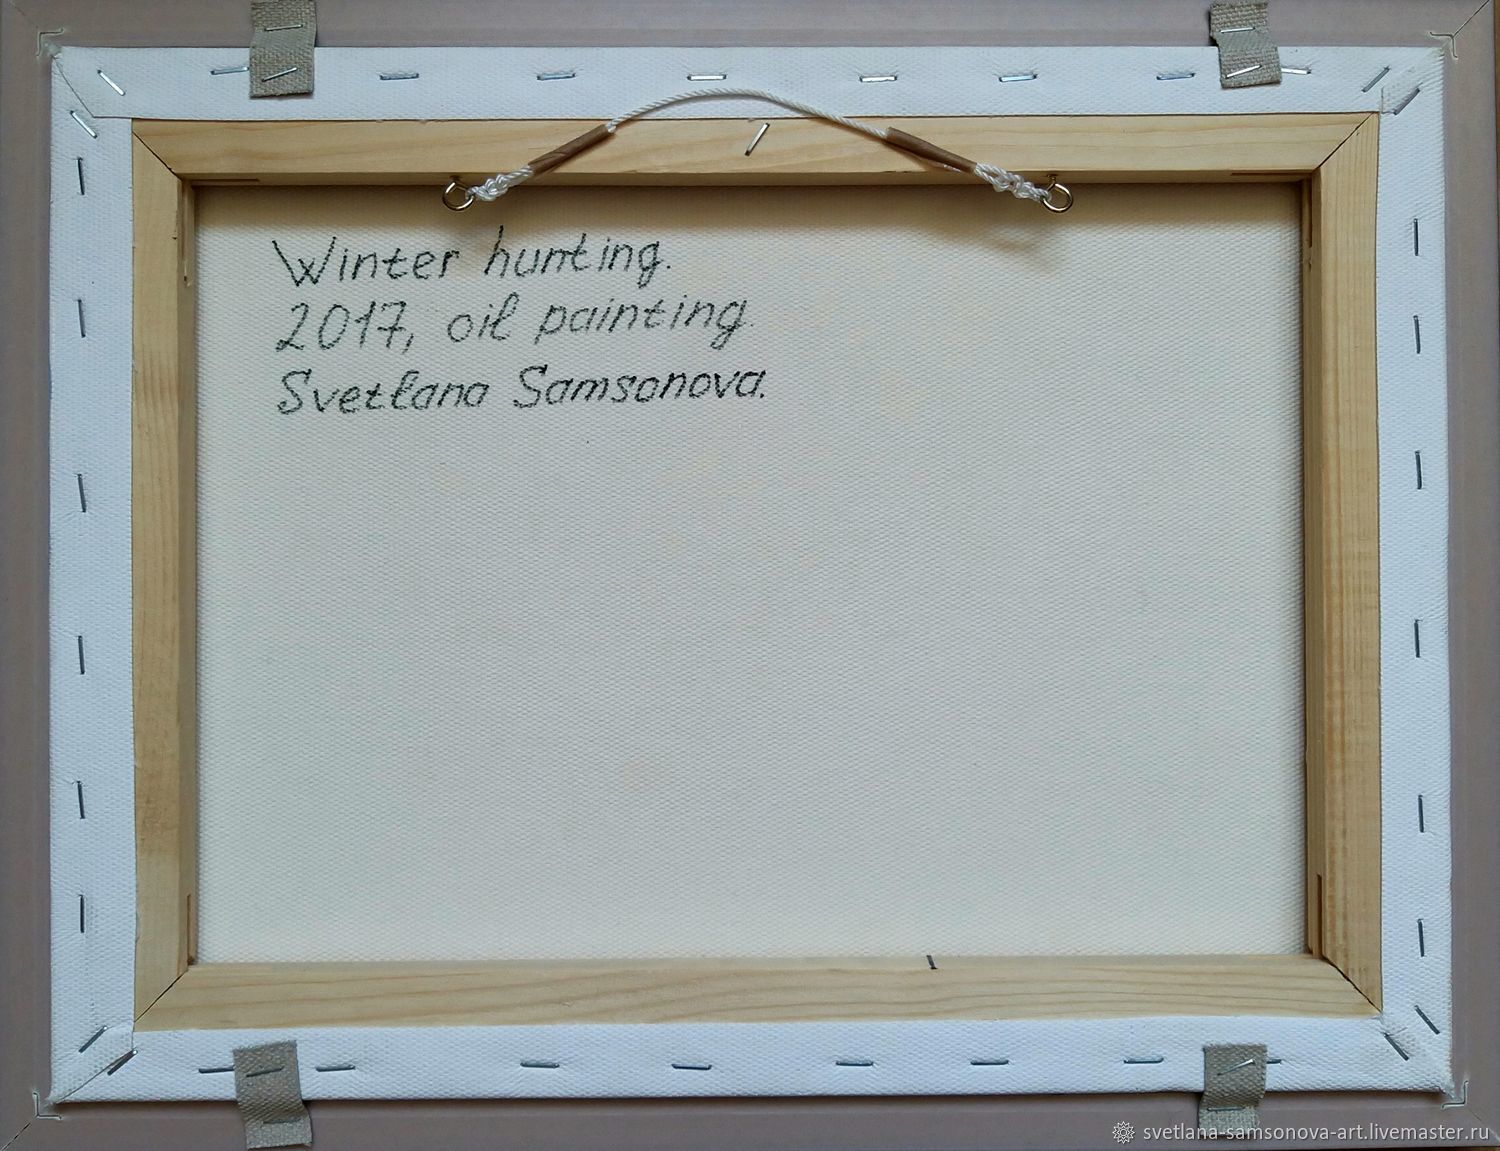 Winter hunting.
2017, oil painting.
Svetlana Samsonova.
svetlana-samsonova-art.livemaster.ru